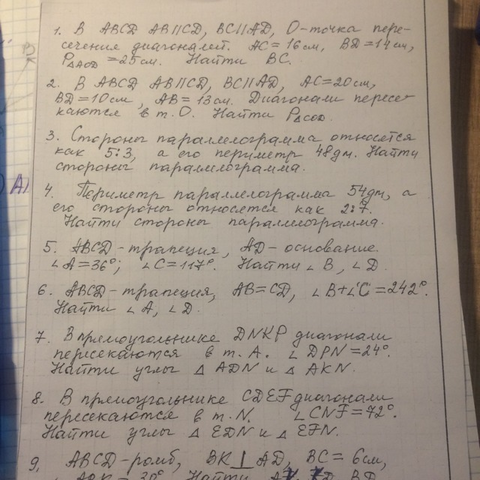 1. В ABCD AB||CD, BC||AD, O-точка пере-
сечения диагоналей. AC=16см, BD=14см,
P△AOD=25см. Найти BC.
2. В ABCD AB||CD, BC||AD, AC=20см,
BD=10см, AB=13см. Диагонали пересе-
каются в т.O. Найти P△COD.
3. Стороны параллелограмма относятся
как 5:3, а его периметр 48дм. Найти
стороны параллелограмма.
А)
4. Периметр параллелограмма 54дм, а
его стороны относятся как 2:7.
Найти стороны параллелограмма.
5. ABCD-трапеция, AD-основание.
∠A=36°; ∠C=117°. Найти ∠B, ∠D.
6. ABCD-трапеция, AB=CD, ∠B+∠C=242°.
Найти ∠A, ∠D.
7. В прямоугольнике DNKP диагонали
пересекаются в т.A. ∠DPN=24°.
Найти углы △ADN и △AKN.
8. В прямоугольнике CDEF диагонали
пересекаются в т.N. ∠CNF=72°.
Найти углы △EDN и △EFN.
9. ABCD-ромб, BK⊥AD, BC=6см,
=30° Найти BD